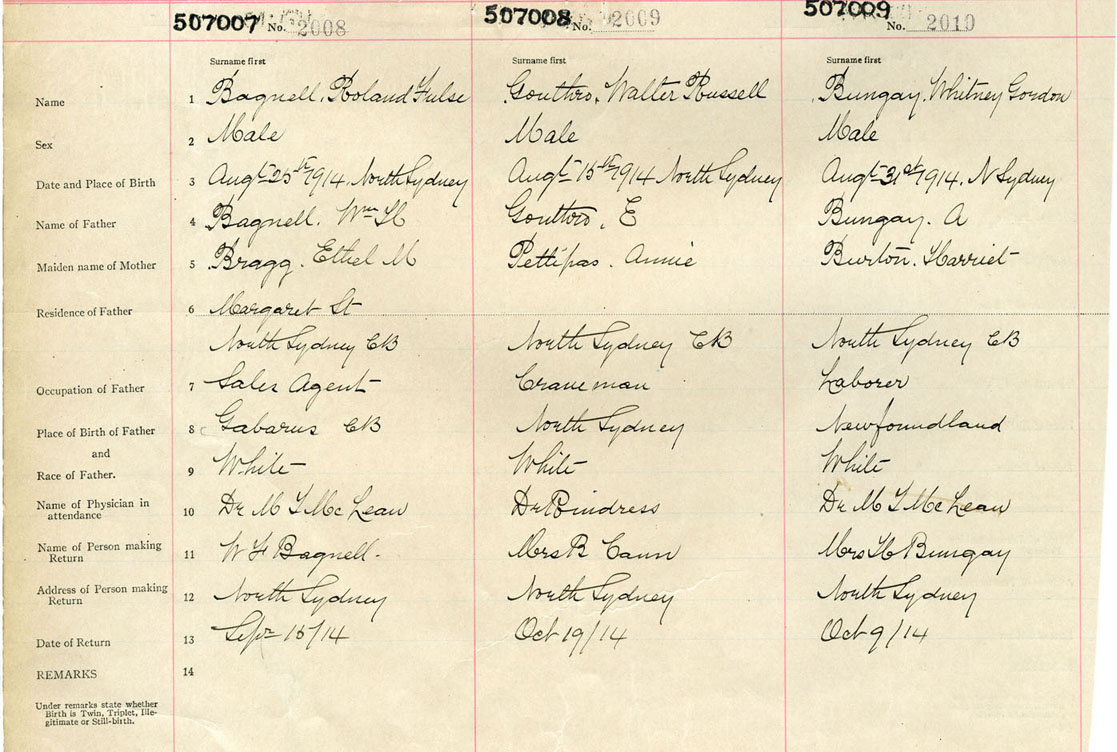 507007 No. 2008 507008 No. 2009 507009 No. 2010
Surname first Surname first Surname first
Name 1 Bagnell, Roland Hulse Gouthro, Walter Russell Bungay, Whitney Gordon
Sex 2 Male Male Male
Date and Place of Birth 3 Augt 25th 1914. North Sydney Augt 15th 1914 North Sydney Augt 31st 1914. N Sydney
Name of Father 4 Bagnell. Wm H Gouthro, E Bungay. A
Maiden name of Mother 5 Bragg. Ethel M Pettipas. Annie Burton. Harriet
Residence of Father 6 Margaret St
North Sydney CB North Sydney CB North Sydney CB
Occupation of Father 7 Sales Agent Crane man Laborer
Place of Birth of Father 8 Gabarus CB North Sydney Newfoundland
and
Race of Father. 9 White White White
Name of Physician in
attendance 10 Dr M T McLean Dr Rindress Dr M T McLean
Name of Person making
Return 11 W H Bagnell. Mrs R Cann Mrs H Bungay
Address of Person making
Return 12 North Sydney North Sydney North Sydney
Date of Return 13 Sept 15/14 Oct 19/14 Oct 9/14
REMARKS 14
Under remarks state whether
Birth is Twin, Triplet, Ille-
gitimate or Still-birth.